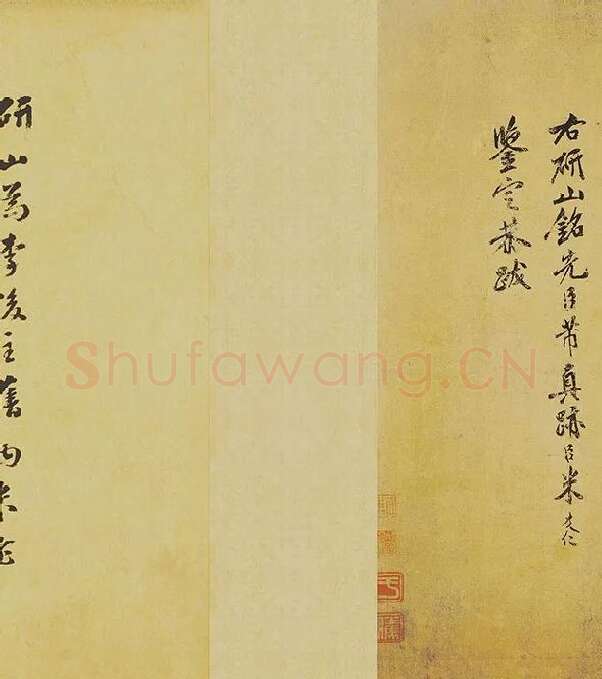 右研山銘先臣芾真跡臣米友仁
鑒定恭跋
研山為李後主舊物米老
Shufawang.CN